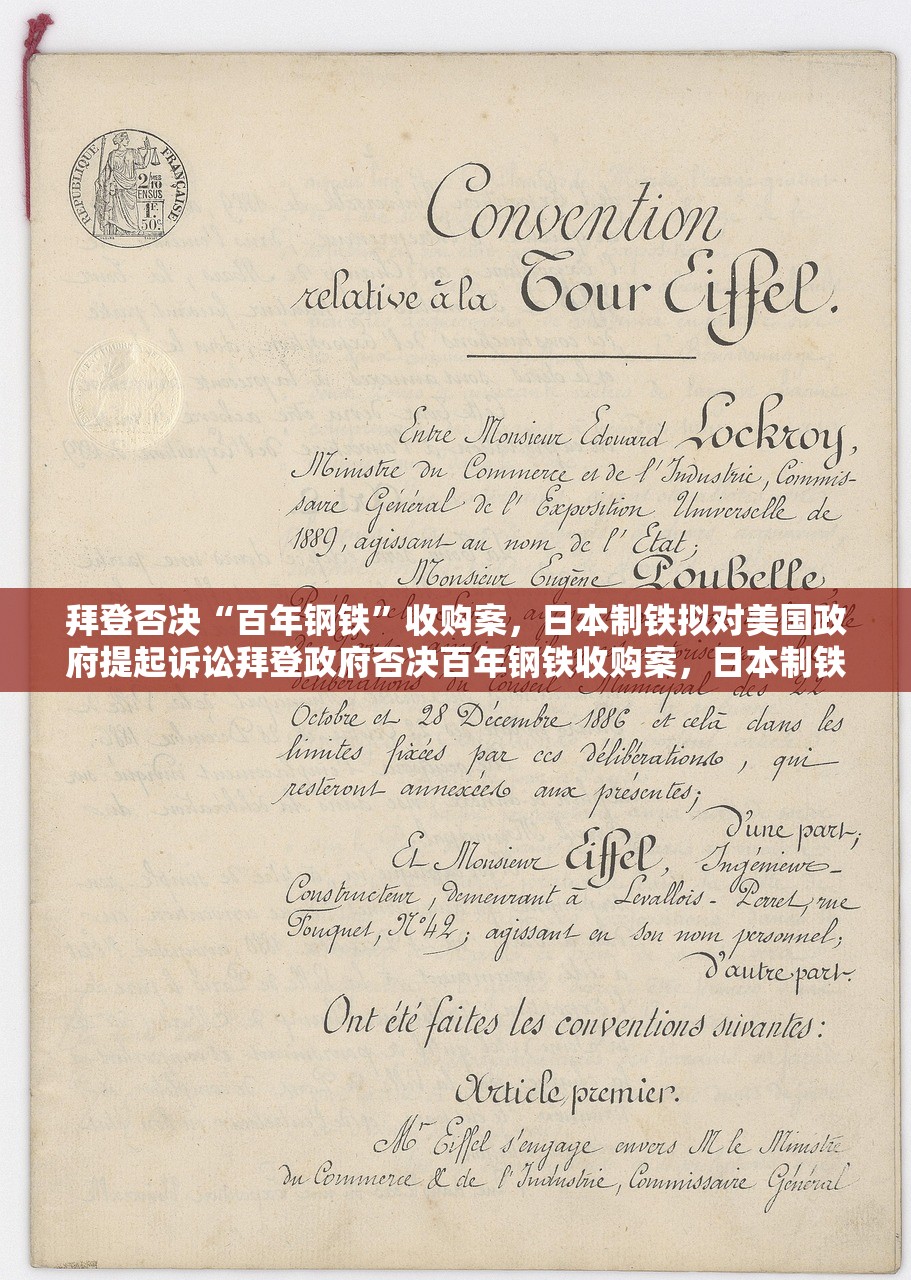 RÉPUBLIQUE FRANÇAISE
2/10
EN SUS
1F.
50c
Convention
relative à la Tour Eiffel.
Entre Monsieur Edouard Lockroy,
Ministre du Commerce et de l'Industrie, Commis-
saire Général de l'Exposition Universelle de
1889, agissant au nom de l'Etat;
Monsieur Eugène Poubelle,
拜登否决“百年钢铁”收购案，日本制铁拟对美国政
府提起诉讼拜登政府否决百年钢铁收购案，日本制铁
délibérations du Conseil Municipal des 22
Octobre et 28 Décembre 1886 et celà dans les
limites fixées par ces délibérations, qui
resteront annexées aux présentes;
D'une part;
Et Monsieur Eiffel, Ingénieur-
Constructeur, demeurant à Levallois-Perret, rue
Fouquet, N°42; agissant en son nom personnel;
D'autre part.
Ont été faites les conventions suivantes:
Article premier.
Mr Eiffel s'engage envers M le Ministre
du Commerce & de l'Industrie, Commissaire Général